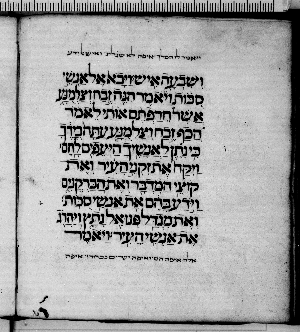 ושבעה איש ויבא אל אנשי
סכות ויאמר הנה זבח וצלמנע
אשר חרפתם אותי לאמר
הכף זבח וצלמנע עתה בידך
כי נתן לאנשיך היעפים לחם
ויקח את זקני העיר ואת
קוצי המדבר ואת הברקנים
וידע בהם את אנשי סכות
ואת מגדל פנואל נתץ ויהרג
את אנשי העיר ויאמר